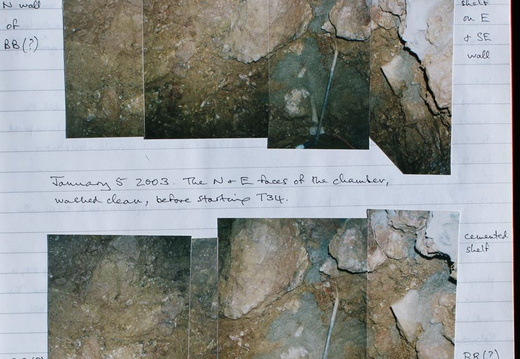 N wall
of
BB(?)
shelf
on E
& SE
wall
January 5 2003. The N & E faces of the chamber,
washed clean, before starting T34.
cemented
shelf
BB(?)